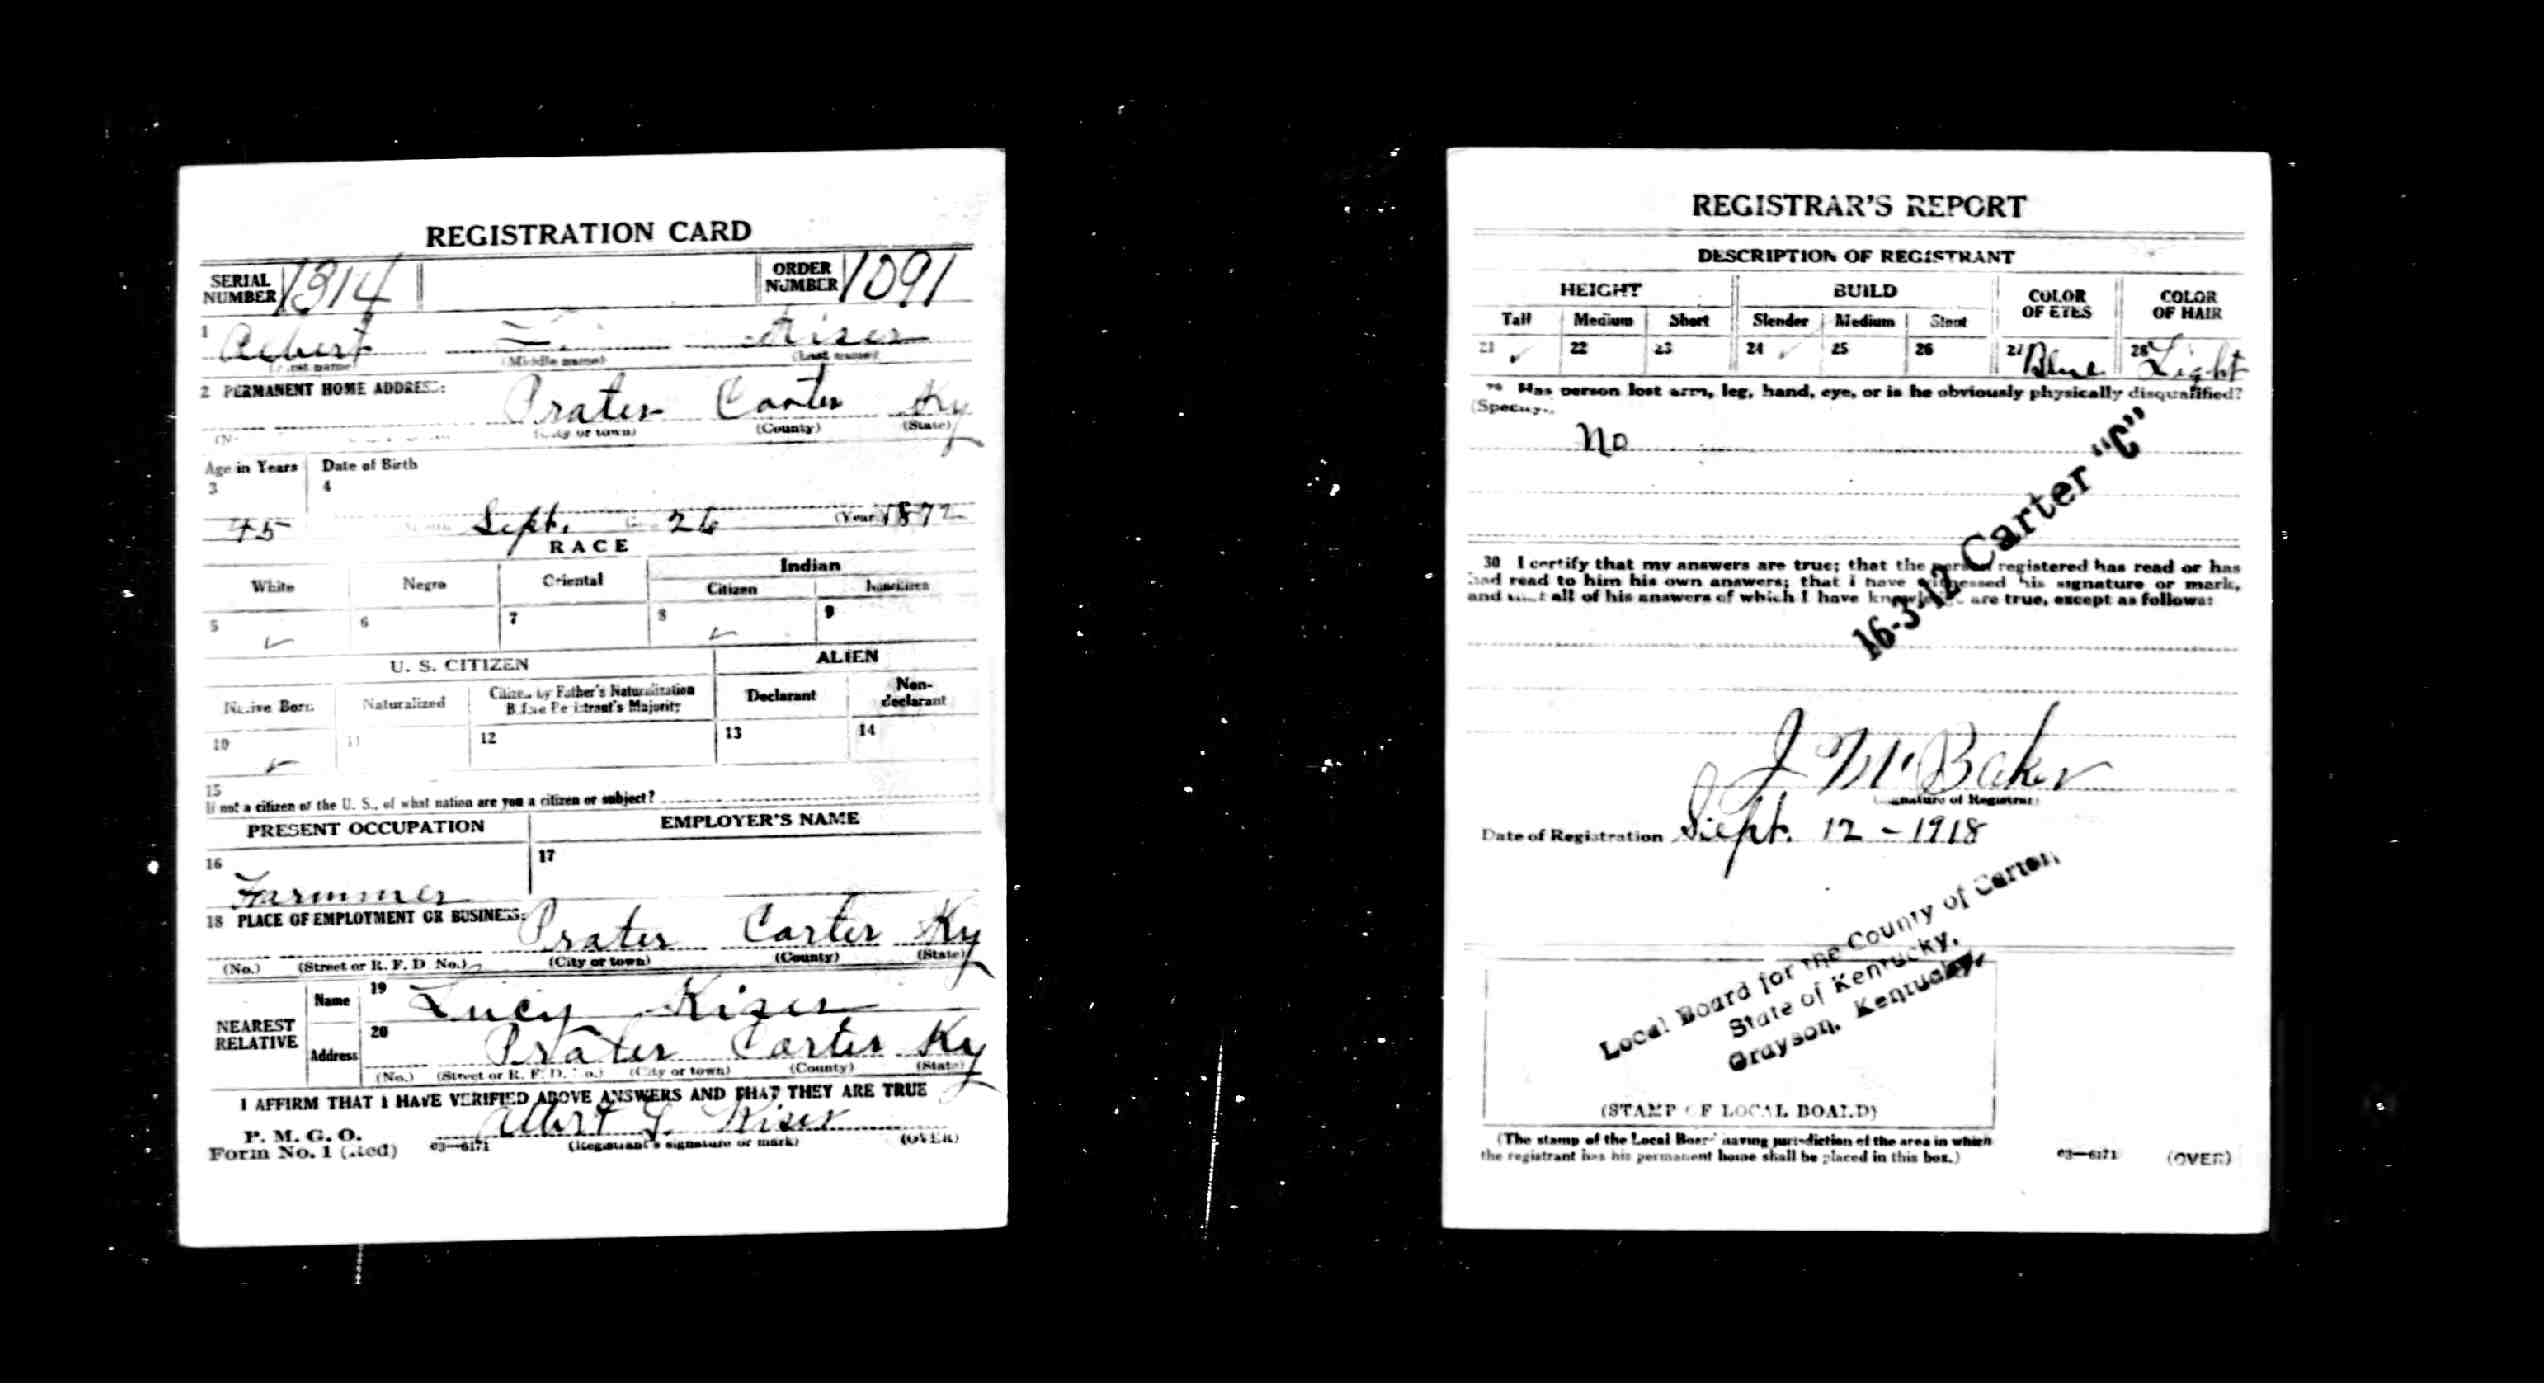 REGISTRATION CARD
SERIAL NUMBER 1314
ORDER NUMBER 1091
1 Albert Kiser
(First name) (Middle name) (Last name)
2 PERMANENT HOME ADDRESS:
Prater Carter Ky
(City or town) (County) (State)
Age in Years Date of Birth
3 4
45 Sept. 26 (Year) 1872
RACE
White Negro Oriental Indian
Citizen Noncitizen
5 ✓ 6 7 8 ✓ 9
U. S. CITIZEN ALIEN
Native Born Naturalized Citizen by Father's Naturalization Before Registrant's Majority Declarant Non-declarant
10 ✓ 11 12 13 14
15
If not a citizen of the U. S., of what nation are you a citizen or subject?
PRESENT OCCUPATION EMPLOYER'S NAME
16 17
Farmmer
18 PLACE OF EMPLOYMENT OR BUSINESS:
Prater Carter Ky
(No.) (Street or R. F. D. No.) (City or town) (County) (State)
NEAREST RELATIVE
Name 19 Lucy Kiser
Address 20 Prater Carter Ky
(No.) (Street or R. F. D. No.) (City or town) (County) (State)
I AFFIRM THAT I HAVE VERIFIED ABOVE ANSWERS AND THAT THEY ARE TRUE
P. M. G. O.
Form No. 1 (Red) 03—6171 Albert Kiser
(Registrant's signature or mark) (OVER)
REGISTRAR'S REPORT
DESCRIPTION OF REGISTRANT
HEIGHT BUILD COLOR OF EYES COLOR OF HAIR
Tall Medium Short Slender Medium Stout
21 ✓ 22 23 24 ✓ 25 26 27 Blue 28 Light
29 Has person lost arm, leg, hand, eye, or is he obviously physically disqualified?
(Specify.)
No
16-3-12 Carter "C"
30 I certify that my answers are true; that the person registered has read or has
had read to him his own answers; that I have witnessed his signature or mark,
and that all of his answers of which I have knowledge are true, except as follows:
J M Baker
(Signature of Registrar)
Date of Registration Sept. 12 - 1918
Local Board for the County of Carter,
State of Kentucky,
Grayson, Kentucky.
(STAMP OF LOCAL BOARD)
(The stamp of the Local Board having jurisdiction of the area in which
the registrant has his permanent home shall be placed in this box.)
03—6171 (OVER)